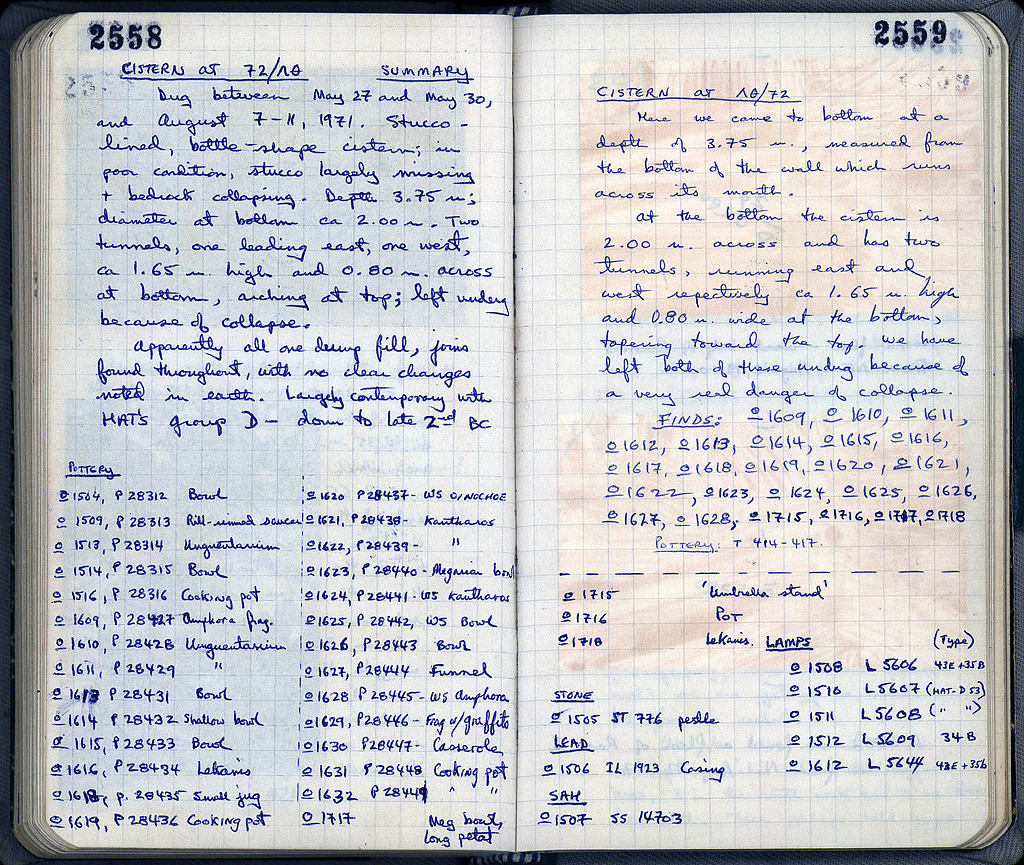 2558
CISTERN AT 72/ΛΘ SUMMARY
Dug between May 27 and May 30,
and August 7-11, 1971. Stucco-
lined, bottle-shape cistern; in
poor condition, stucco largely missing
+ bedrock collapsing. Depth 3.75 m;
diameter at bottom ca 2.00 m. Two
tunnels, one leading east, one west,
ca 1.65 m. high and 0.80 m. across
at bottom, arching at top; left undug
because of collapse.
Apparently all one dump fill, joins
found throughout, with no clear changes
noted in earth. Largely contemporary with
HAT's group D - down to late 2nd BC
POTTERY
o 1504, P 28312 Bowl
o 1509, P 28313 Rill-rimmed saucer
o 1513, P 28314 Unguentarium
o 1514, P 28315 Bowl
o 1516, P 28316 Cooking pot
o 1609, P 28427 Amphora frag.
o 1610, P 28428 Unguentarium
o 1611, P 28429 "
o 1613 P 28431 Bowl
o 1614 P 28432 Shallow bowl
o 1615, P 28433 Bowl
o 1616, P 28434 Lekanis
o 1618, P. 28435 Small jug
o 1619, P 28436 Cooking pot
o 1620 P 28437- WS OINOCHOE
o 1621, P 28438- Kantharos
o 1622, P 28439- "
o 1623, P 28440 - Megarian bowl
o 1624, P 28441 - WS Kantharos
o 1625, P 28442, WS Bowl
o 1626, P 28443 Bowl
o 1627, P 28444 Funnel
o 1628 P 28445- WS Amphora
o 1629, P 28446- Frag w/graffito
o 1630 P 28447- Casserole
o 1631 P 28448 Cooking pot
o 1632 P 28449 " "
o 1717 Meg bowl,
long petal
2559
CISTERN AT ΛΘ/72
Here we came to bottom at a
depth of 3.75 m., measured from
the bottom of the wall which runs
across its mouth.
At the bottom the cistern is
2.00 m. across and has two
tunnels, running east and
west repectively ca 1.65 m. high
and 0.80 m. wide at the bottom,
tapering toward the top. We have
left both of these undug because of
a very real danger of collapse.
FINDS: o 1609, o 1610, o 1611,
o 1612, o 1613, o 1614, o 1615, o 1616,
o 1617, o 1618, o 1619, o 1620, o 1621,
o 1622, o 1623, o 1624, o 1625, o 1626,
o 1627, o 1628, o 1715, o 1716, o 1717, o 1718
POTTERY: T 414-417.
o 1715 'Umbrella stand'
o 1716 POT
o 1718 Lekanis.
STONE
o 1505 ST 776 pestle
LEAD
o 1506 IL 1923 Casing
SAH
o 1507 SS 14703
LAMPS (Type)
o 1508 L 5606 43E+35B
o 1510 L 5607 (HAT-D 53)
o 1511 L 5608 (" ")
o 1512 L 5609 34B
o 1612 L 5644 43E+35b